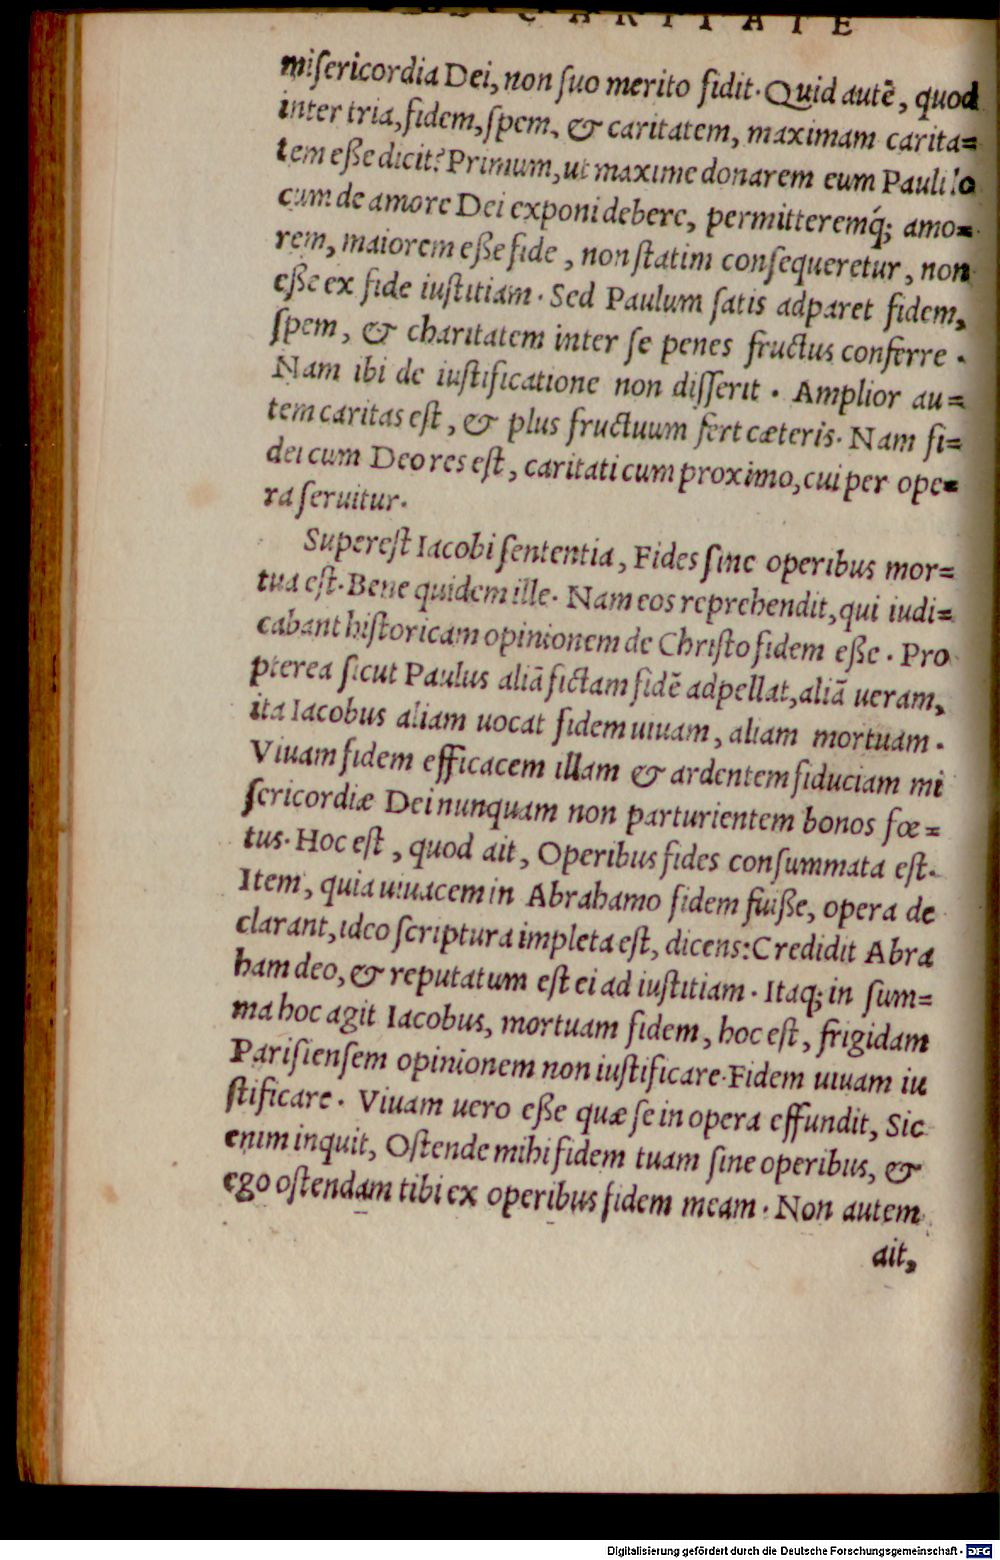 DE CARITATE
miſericordia Dei, non ſuo merito fidit. Quid autẽ, quod
inter tria, fidem, ſpem, & caritatem, maximam carita=
tem eße dicit? Primum, ut maxime donarem eum Pauli lo
cum de amore Dei exponi debere, permitteremq́; amo=
rem, maiorem eße fide, non ſtatim conſequeretur, non
eße ex fide iuſtitiam. Sed Paulum ſatis adparet fidem,
ſpem, & charitatem inter ſe penes fructus conferre.
Nam ibi de iuſtificatione non diſſerit. Amplior au=
tem caritas eſt, & plus fructuum fert cæteris. Nam fi=
dei cum Deo res eſt, caritati cum proximo, cui per ope=
ra ſeruitur.
Supereſt Iacobi ſententia, Fides ſine operibus mor=
tua eſt. Bene quidem ille. Nam eos reprehendit, qui iudi=
cabant hiſtoricam opinionem de Chriſto fidem eße. Pro
pterea ſicut Paulus aliã fictam fidẽ adpellat, aliã ueram,
ita Iacobus aliam uocat fidem uiuam, aliam mortuam.
Viuam fidem efficacem illam & ardentem fiduciam mi
ſericordiæ Dei nunquam non parturientem bonos fœ=
tus. Hoc eſt, quod ait, Operibus fides conſummata eſt.
Item, quia uiuacem in Abrahamo fidem fuiße, opera de
clarant, ideo ſcriptura impleta eſt, dicens: Credidit Abra
ham deo, & reputatum eſt ei ad iuſtitiam. Itaq; in ſum=
ma hoc agit Iacobus, mortuam fidem, hoc eſt, frigidam
Pariſienſem opinionem non iuſtificare. Fidem uiuam iu
ſtificare. Viuam uero eße quæ ſe in opera effundit, Sic
enim inquit, Oſtende mihi fidem tuam ſine operibus, &
ego oſtendam tibi ex operibus fidem meam. Non autem
ait,
Digitalisierung gefördert durch die Deutsche Forschungsgemeinschaft - DFG